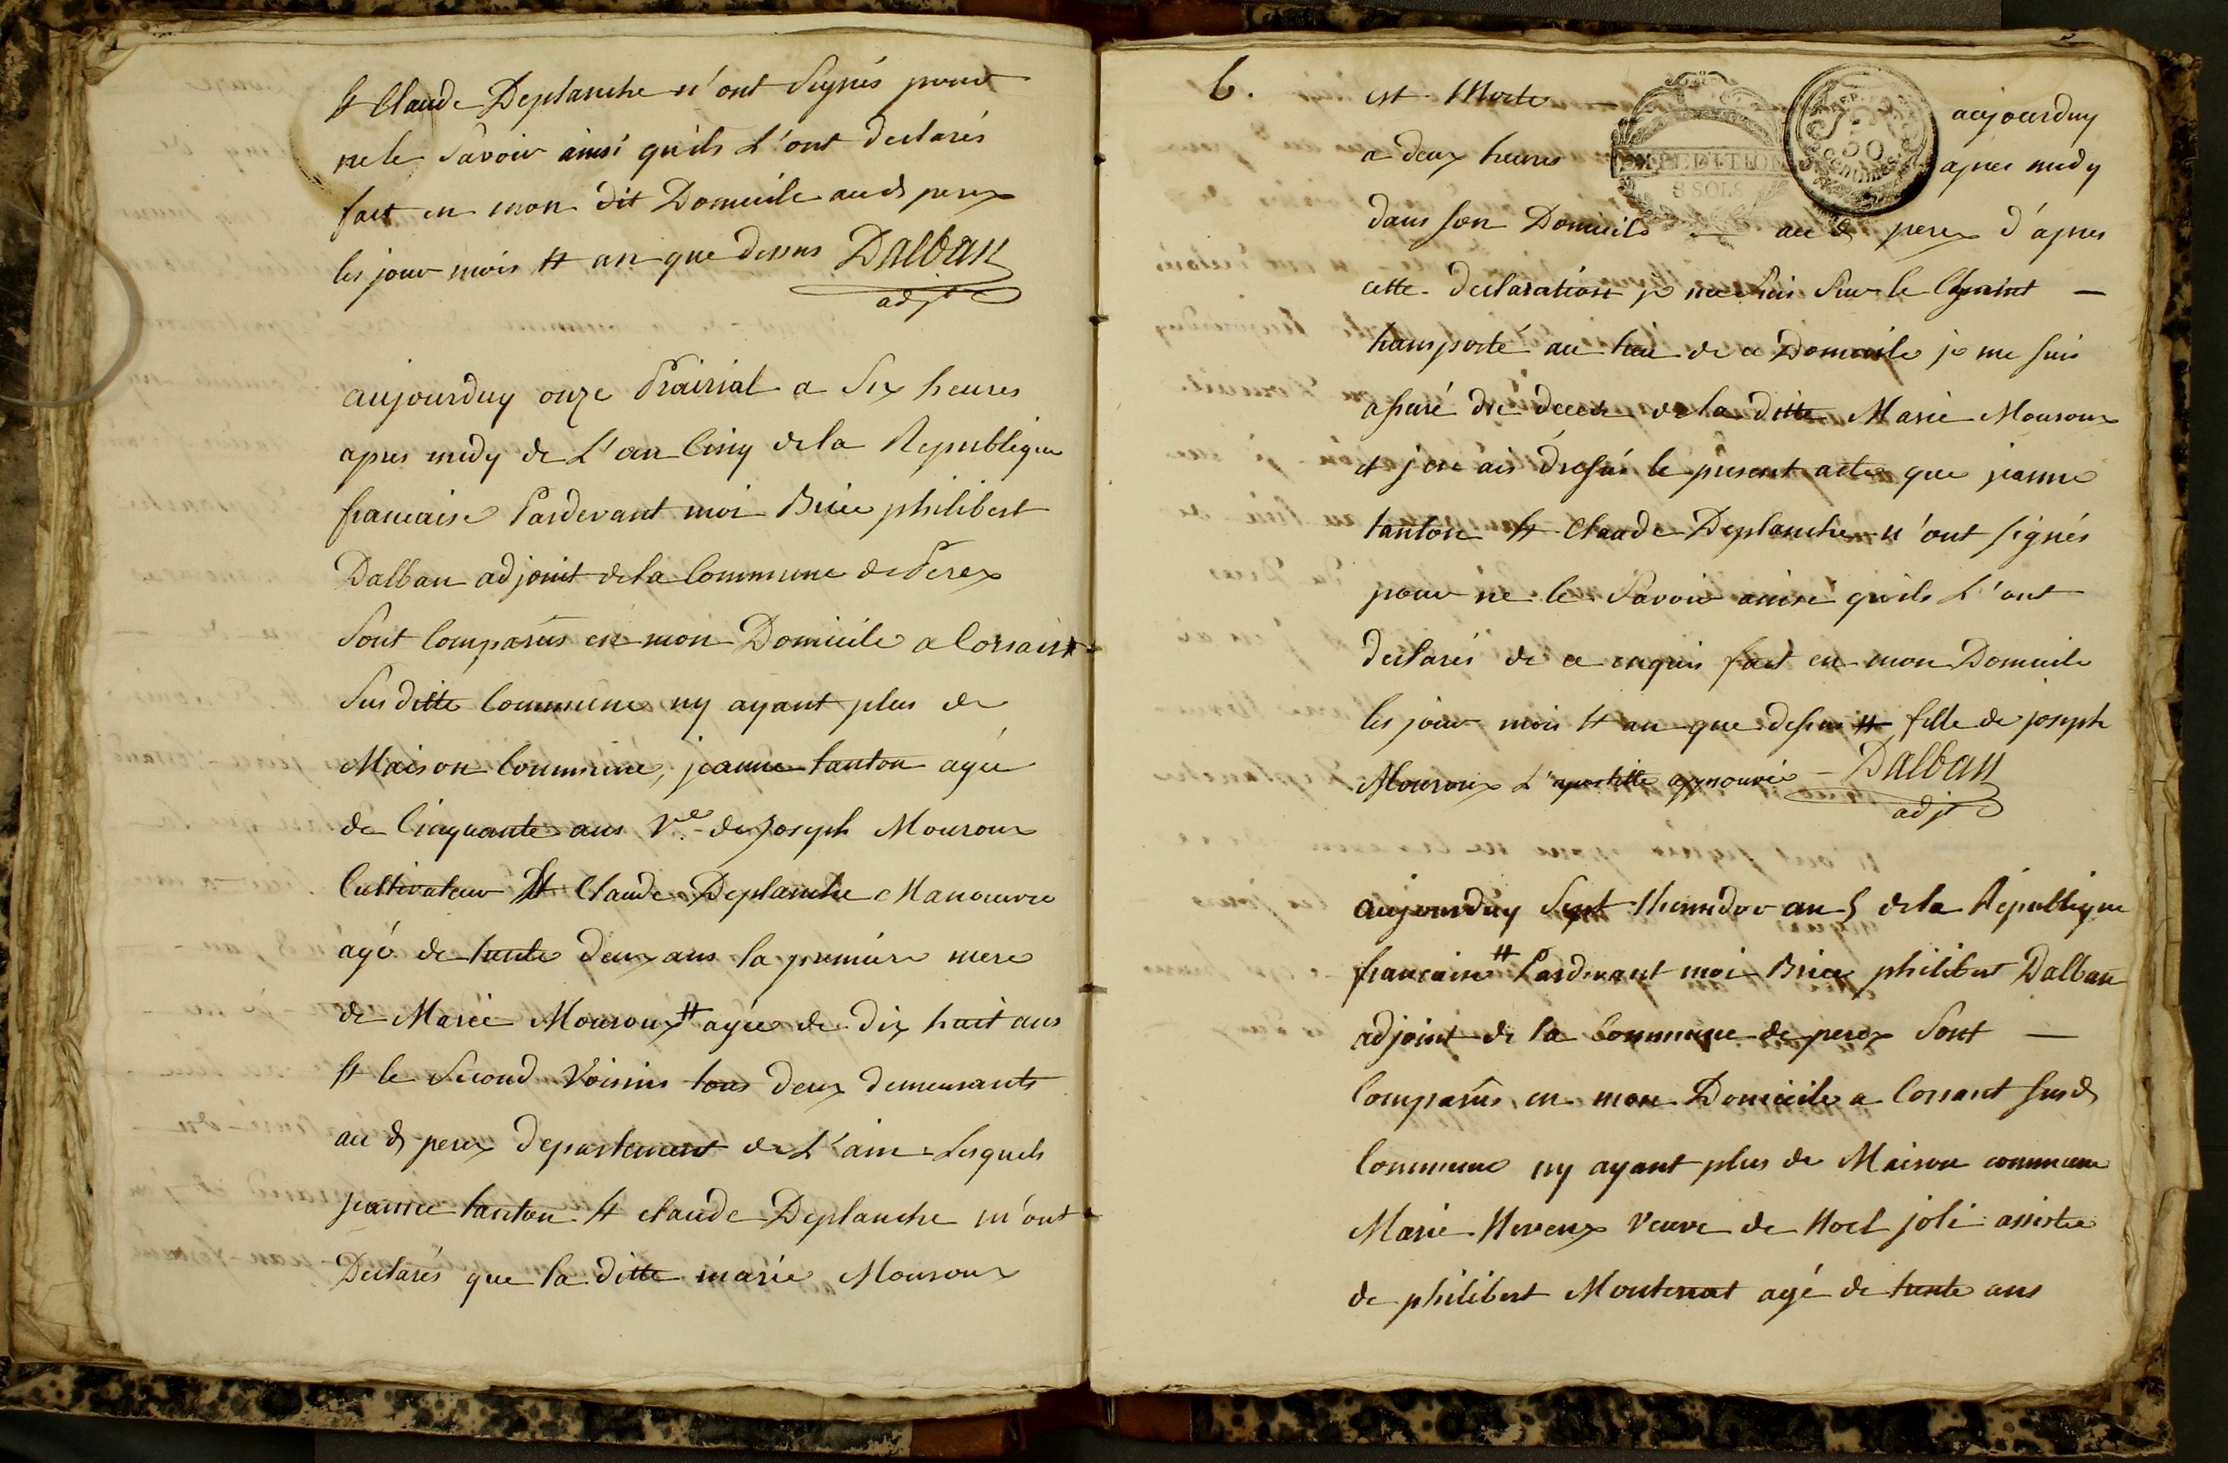 et Claude Deplanche n'ont signés pour
ne le savoir ainsi qu'ils L'ont declarés
fait en mon dit Domicile aud perex
les jour mois et an que dessus Dalban
adjt
aujourduy onze Prairial a six heures
apres midy de L'an Cinq de la Republique
francaise Pardevant moi Brice philibert
Dalban adjoint de la Commune de Perex
sont Comparûs en mon Domicile a Corsain
susditte Commune ny ayant plus de
Maison Commune, jeanne tanton agée
de Cinquante ans Ve de Joseph Mouroux
Cultivateur et Claude Deplanche Manouvre
agé de trente deux ans la premiere mere
de Marie Mouroux # agée de dix huit ans
et le second Voisins tous deux demeurants
au d perex departement de L'ain Lesquels
jeanne tanton et claude Deplanche m'ont
Declarés que la ditte marie Mouroux
6.
est Morte aujourduy
a deux heures apres midy
EXPEDITION
8 SOLS
REP. FRA.
50
CENTIMES
dans son Domicile — au d perex d'apres
cette declaration je me suis sur le Champ —
transporté au lieu de ce Domicile je me suis
assuré du decés de la ditte Marie Mouroux
et j'en ais dressé le present acte que jeanne
tanton et Claude Deplanche n'ont signés
pour ne le savoir ainsi qu'ils L'ont
declarés de ce enquis fait en mon Domicile
les jour mois et an que dessus # fille de joseph
Mouroux L'apostille approuvée — Dalban
adjt
aujourduy Sept thermidor an 5 de la République
francaise # Pardevant moi Brice philibert Dalban
adjoint de la Commune de perex sont —
Comparûs en mon Domicile a Corsant susd
Commune ny ayant plus de Maison commune
Marie veuve de Noel joli assistée
de philibert Montenat agé de trente ans